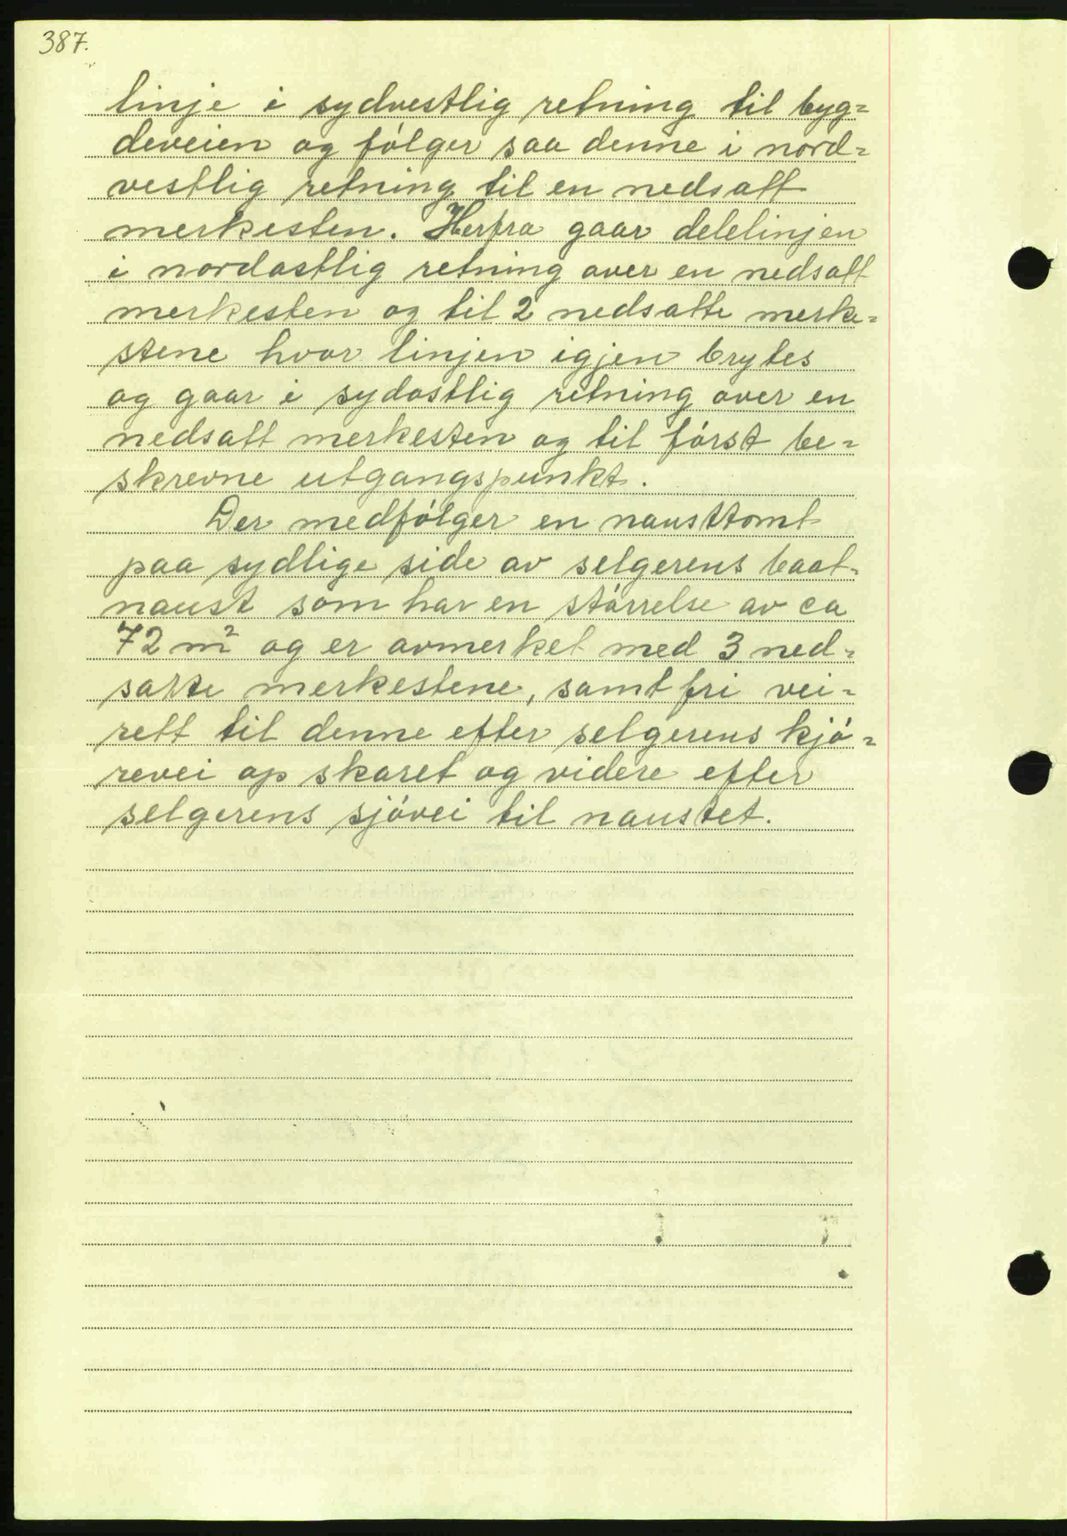 387.
linje i sydvestlig retning til byg=
deveien og følger saa denne i nord=
vestlig retning til en nedsatt
merkesten. Herfra gaar delelinjen
i nordøstlig retning over en nedsatt
merkesten og til 2 nedsatte merke=
stene hvor linjen igjen brytes
og gaar i sydøstlig retning over en
nedsatt merkesten og til først be=
skrevne utgangspunkt.
Der medfølger en nausttomt
paa sydlige side av selgerens baat=
naust som har en størrelse av ca
72 m² og er avmerket med 3 ned=
satte merkestene, samt fri vei=
rett til denne efter selgerens kjø=
revei op skaret og videre efter
selgerens sjøvei til naustet.